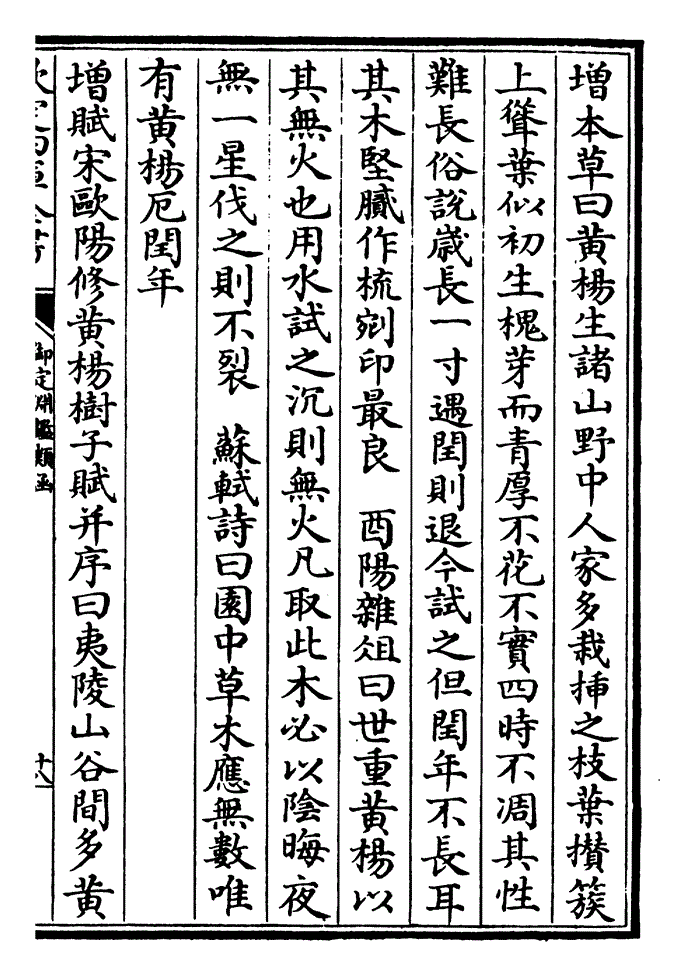 增本草曰黄楊生諸山野中人家多栽揷之枝葉攅簇
上聳葉似初生槐芽而青厚不花不實四時不凋其性
難長俗說歲長一寸遇閏則退今試之但閏年不長耳
其木堅膩作梳剜印最良　酉陽雜俎曰世重黄楊以
其無火也用水試之沉則無火凡取此木必以陰晦夜
無一星伐之則不裂　蘇軾詩曰園中草木應無數唯
有黄楊厄閏年
增賦宋歐陽修黄楊樹子賦并序曰夷陵山谷間多黄
欽定四庫全書
御定淵鑑類函
十八